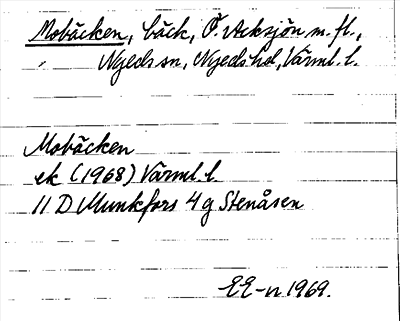 Mobäcken, bäck, Ö. Acksjön m. fl.,
Nyeds sn, Nyeds hd, Värml. l.
Mobäcken
ek (1968) Värml. l.
11 D Munkfors 4 g Stenåsen
EE-n 1969.